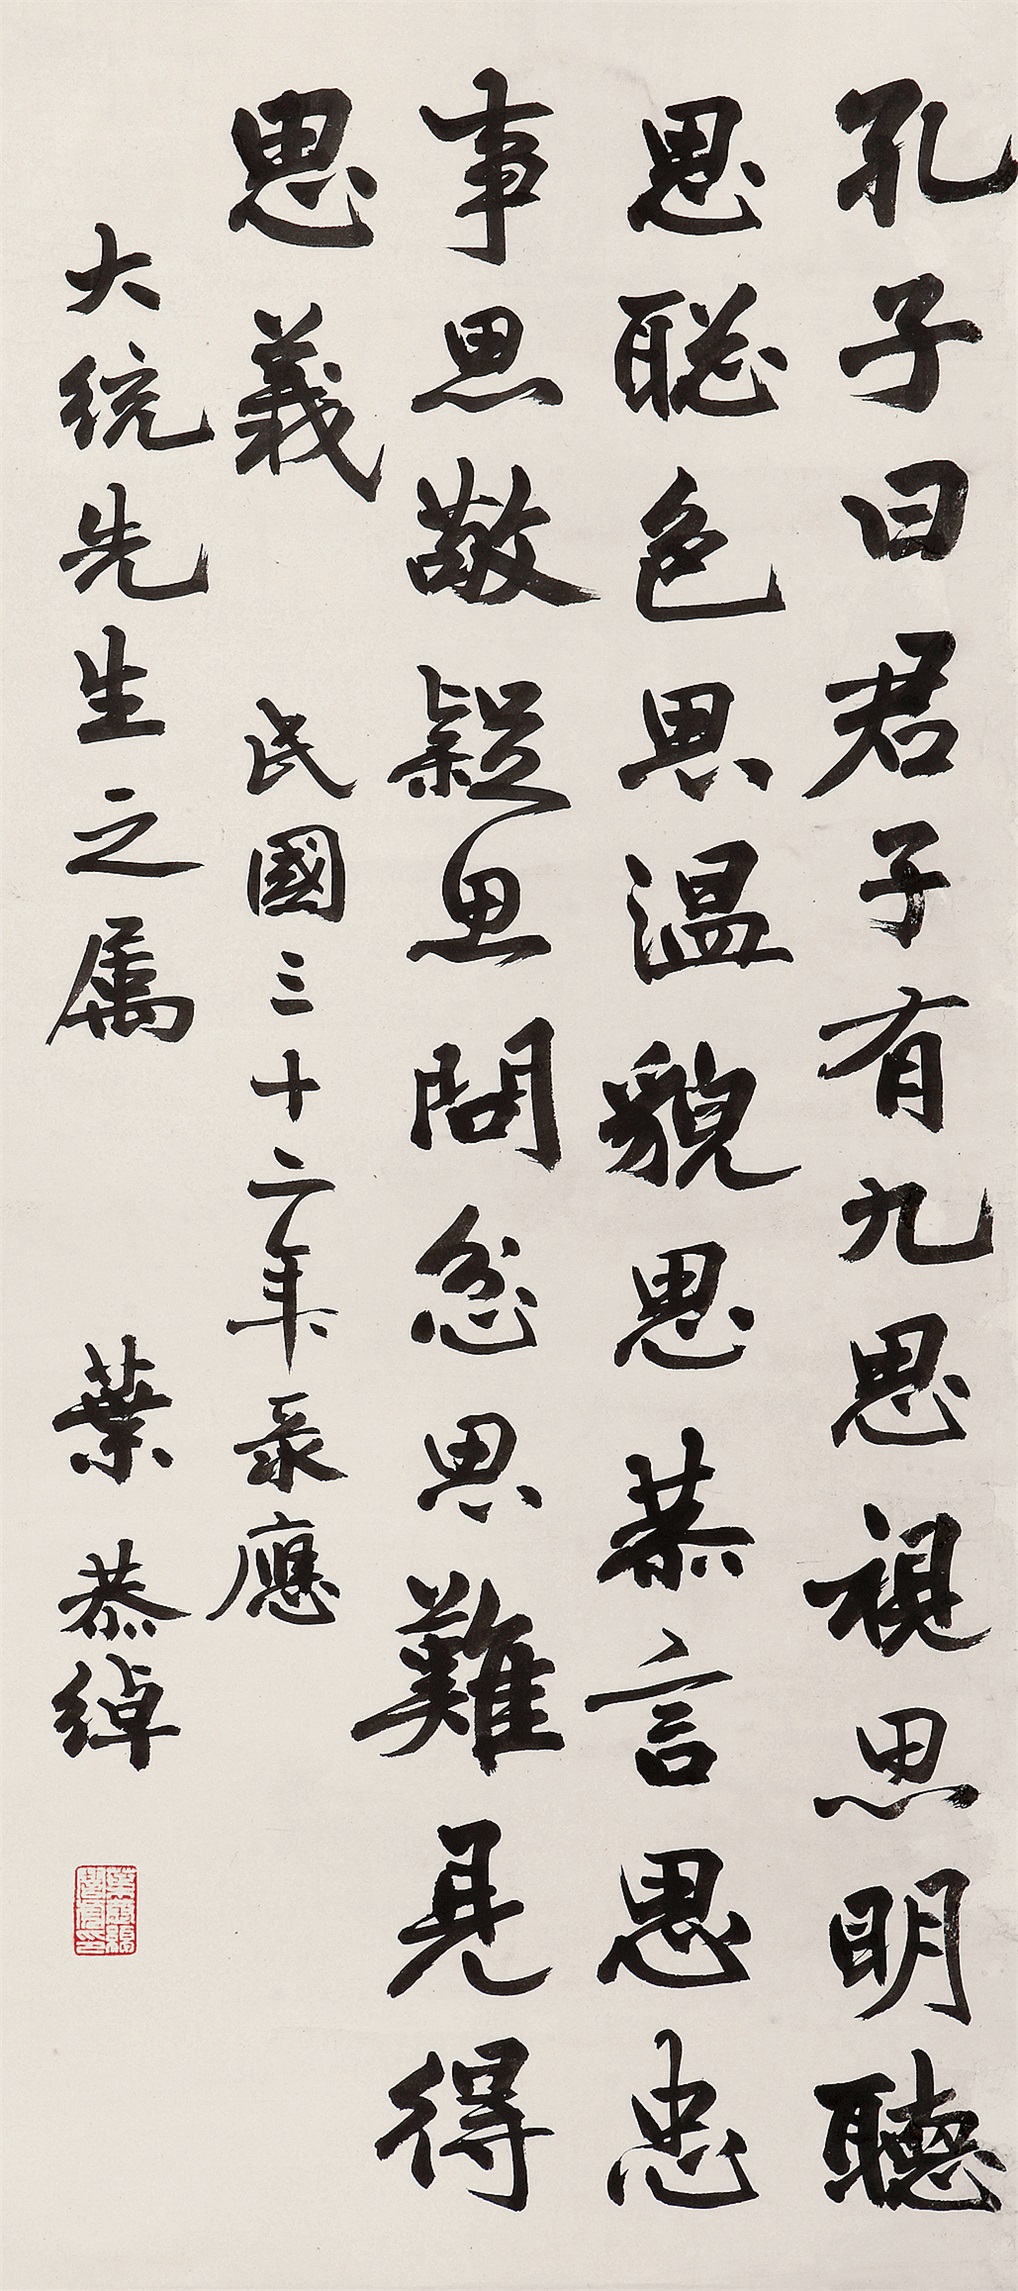 孔子曰君子有九思視思明聽
思聰色思温貌思恭言思忠
事思敬疑思問忿思難見得
思義
民國三十二年录應
大统先生之属
葉恭綽